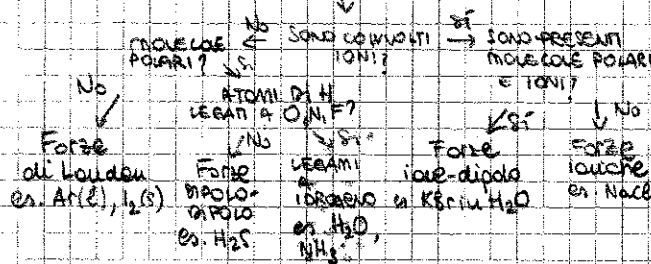 No
Sí
MOLECOLE
POLARI?
SONO COINVOLTI
IONI?
SONO PRESENTI
MOLECOLE POLARI
E IONI?
No
Sì
ATOMI DI H
LEGATI A O,N,F?
Sí
No
Forze
di London
es. Ar(l), I₂(s)
No
Forze
DIPOLO-
DIPOLO
es. H₂S
Sì
LEGAMI
A
IDROGENO
es. H₂O,
NH₃
Forze
ione-dipolo
es KBr in H₂O
Forze
ioniche
es NaCl